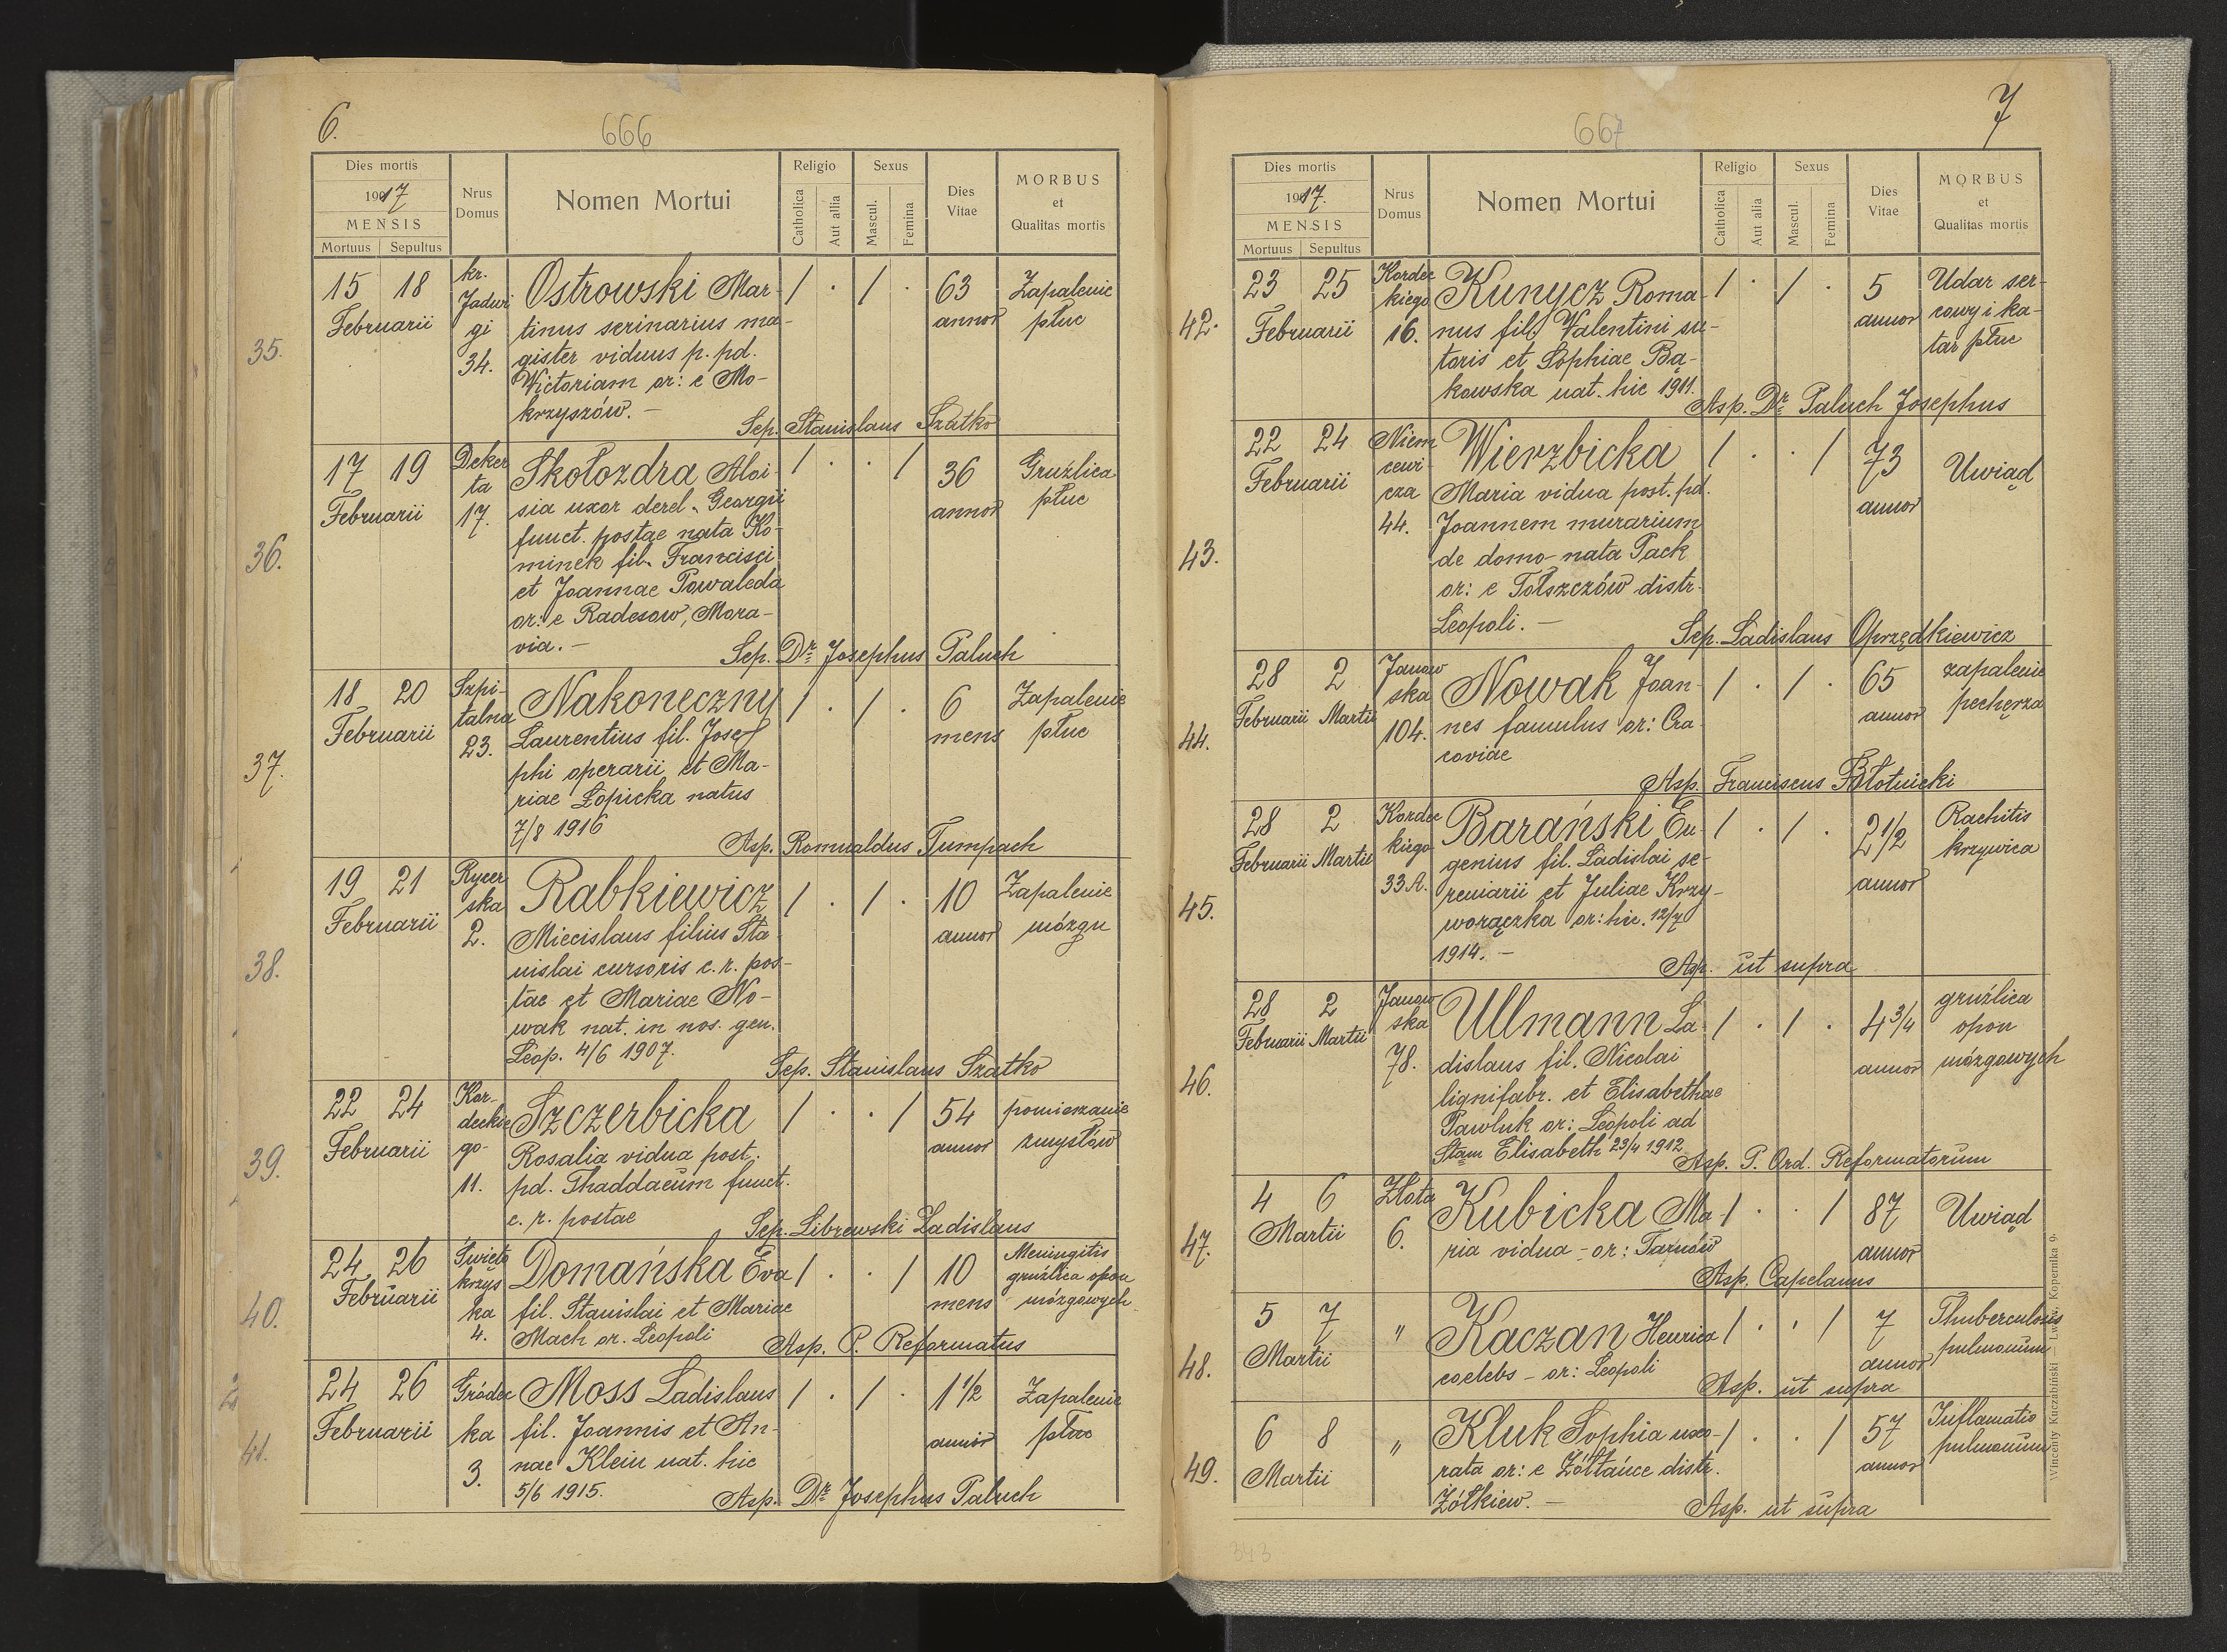 6.
666
Dies mortis
1917
MENSIS
Mortuus Sepultus
Nrus Domus
Nomen Mortui
Religio
Catholica Aut alia
Sexus
Mascul. Femina
Dies Vitae
MORBUS
et
Qualitas mortis
35.
15 18
Februarii
kr.
Jadwi
gi
34.
Ostrowski Mar-
tinus serinarius ma-
gister viduus p. pd.
Wictoriam or: e Mo-
krzyszów. –
/ · / ·
63
annor
Zapalenie
płuc
Sep. Stanislaus Szatko
36.
17 19
Februarii
Deker
ta
17.
Skołozdra Aloi-
sia uxor derel. Georgii
funct. postae nata Ko-
minek fil. Francisci
et Joannae Powaleda
or: e Radesow, Mora-
via. –
/ · · /
36
annor
Gruźlica
płuc
Sep. Dr Josephus Paluch
37.
18 20
Februarii
Szpi-
talna
23.
Nakoneczny
Laurentius fil. Jose
phi operarii et Ma-
riae Łopicka natus
7/8 1916
/ · / ·
6
mens
Zapalenie
płuc
Asp. Romualdus Tumpach
38.
19 21
Februarii
Rycer
ska
2.
Rabkiewicz
Miecislaus filius Sta
nislai cursoris c. r. pos-
tae et Mariae No-
wak nat. in nos. gen.
Leop. 4/6 1907.
/ · / ·
10
annor
Zapalenie
mózgu
Sep. Stanislaus Szatko
39.
22 24
Februarii
Kor-
deckie
go-
11.
Szczerbicka
Rosalia vidua post.
pd. Thaddaeum funct.
c. r. postae
/ · · /
54
annor
pomieszanie
zmysłów
Sep. Librewski Ladislaus
40.
24 26
Februarii
Święto
krzys
ka
4.
Domańska Eva
fil. Stanislai et Mariae
Mach or. Leopoli
/ · · /
10
mens
Meningitis
gruźlica opon
mózgowych
Asp. P. Reformatus
41.
24 26
Februarii
Gródec
ka
3.
Moss Ladislaus
fil. Joannis et An-
nae Klein nat. hic
5/6 1915.
/ · / ·
1 1/2
annor
Zapalenie
płuc
Asp. Dr Josephus Paluch
7
667
Dies mortis
1917.
MENSIS
Mortuus Sepultus
Nrus Domus
Nomen Mortui
Religio
Catholica Aut alia
Sexus
Mascul. Femina
Dies Vitae
MORBUS
et
Qualitas mortis
42.
23 25
Februarii
Kordec
kiego
16.
Kunycz Roma-
nus fil. Valentini su-
toris et Sophiae Bą-
kowska nat. hic 1911.
/ · / ·
5
annor
Udar ser-
cowy i ka-
tar płuc
Asp. Dr Paluch Josephus
43.
22 24
Februarii
Niem
cewi-
cza
44.
Wierzbicka
Maria vidua post. pd.
Joannem murarium
de domo nata Pack
or: e Tołszczów distr.
Leopoli. –
/ · · /
73
annor
Uwiąd
Sep. Ladislaus Oprzędkiewicz
44.
28 2
Februarii Martii
Janow
ska
104.
Nowak Joan-
nes famulus or: Cra
coviae
/ · / ·
65
annor
zapalenie
pęcherza
Asp. Franciscus Błotnicki
45.
28 2
Februarii Martii
Kordec
kiego
33 A.
Barański Eu-
genius fil. Ladislai se-
remiarii et Juliae Krzy-
worączka or: hic. 12/7
1914. –
/ · / ·
2 1/2
annor
Rachitis
krzywica
Asp. ut supra
46.
28 2
Februarii Martii
Janow
ska
78.
Ullmann La-
dislaus fil. Nicolai
lignifabr. et Elisabethae
Pawluk or: Leopoli ad
Stam Elisabeth 23/4 1912
/ · / ·
4 3/4
annor
gruźlica
opon
mózgowych
Asp. P. Ord. Reformatorum
47.
4 6
Martii
Złota
6.
Kubicka Ma-
ria vidua - or: Tarnów
/ · · /
87
annor
Uwiąd
Asp. Capelanus
48.
5 7
Martii
"
Kaczan Henrica
coelebs – or: Leopoli
/ · · /
7
annor
Thuberculosis
pulmonum
Asp. ut supra
49.
6 8
Martii
"
Kluk Sophia uxo-
rata or: e Żółtańce distr.
Żółkiew. –
/ · · /
57
annor
Inflamatio
pulmonum
Asp. ut supra
Wincenty Kuczabiński — Lwów, Kopernika 9.
343